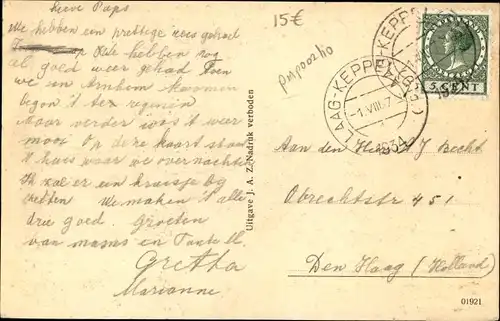 Lieve Paps
We hebben een prettige reis gehad
op Kale hebben nog
al goed weer gehad Toen
we in Arnhem kwamen
begon 't te regenen
Maar verder was 't weer
mooi Op deze kaart staat
't huis waar we overnachten
Ik zal er een kruisje bij
zetten We maken 't alle
drie goed. Groeten
van mams en Tante M.
Gretha
Marianne
15€
pnp002ho
Uitgave J. A. Z. Nadruk verboden
LAAG-KEPPEL
1.VIII.7
1934
KEPPEL
5 CENT
Aan den Heer J Becht
Obrechtstr 451
Den Haag (Holland)
01921